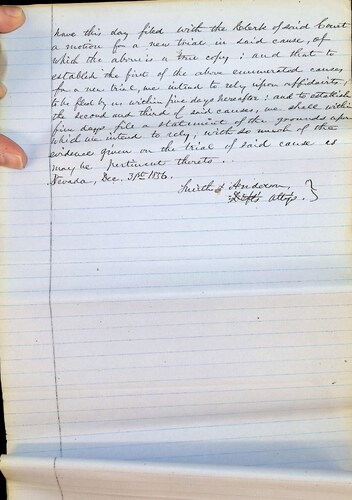 have this day filed with the Clerk of said Court
a motion for a new trial in said cause, of
which the above is a true copy; and that to
establish the first of the above enumerated causes
for a new trial, we intend to rely upon affidavits,
to be filed by us within five days hereafter; and to establish
the second and third of said causes, we shall within
five days file a statement of the grounds upon
which we intend to rely, with so much of the
evidence given on the trial of said cause as
may be pertinent thereto...
Nevada, Dec. 31st 1856.
Smith & Anderson,
Defts Attys.